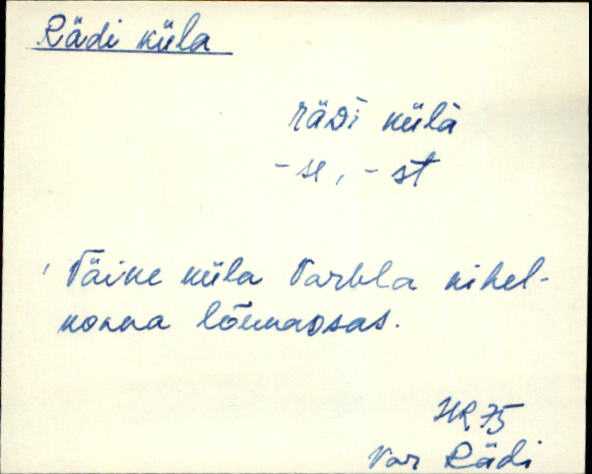 Rädi küla
räDì külà
-se, -st
Väike küla Varbla kihel-
konna lõunaosas.
HR 75
Var Rädi